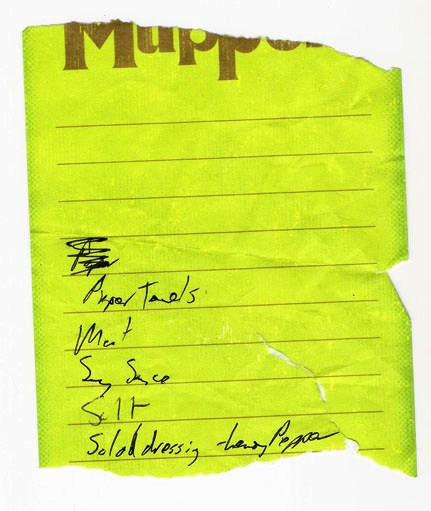 Muppe
Paper Towels
Meat
Soy Sauce
Salt
Salad dressing - Lemon Pepper